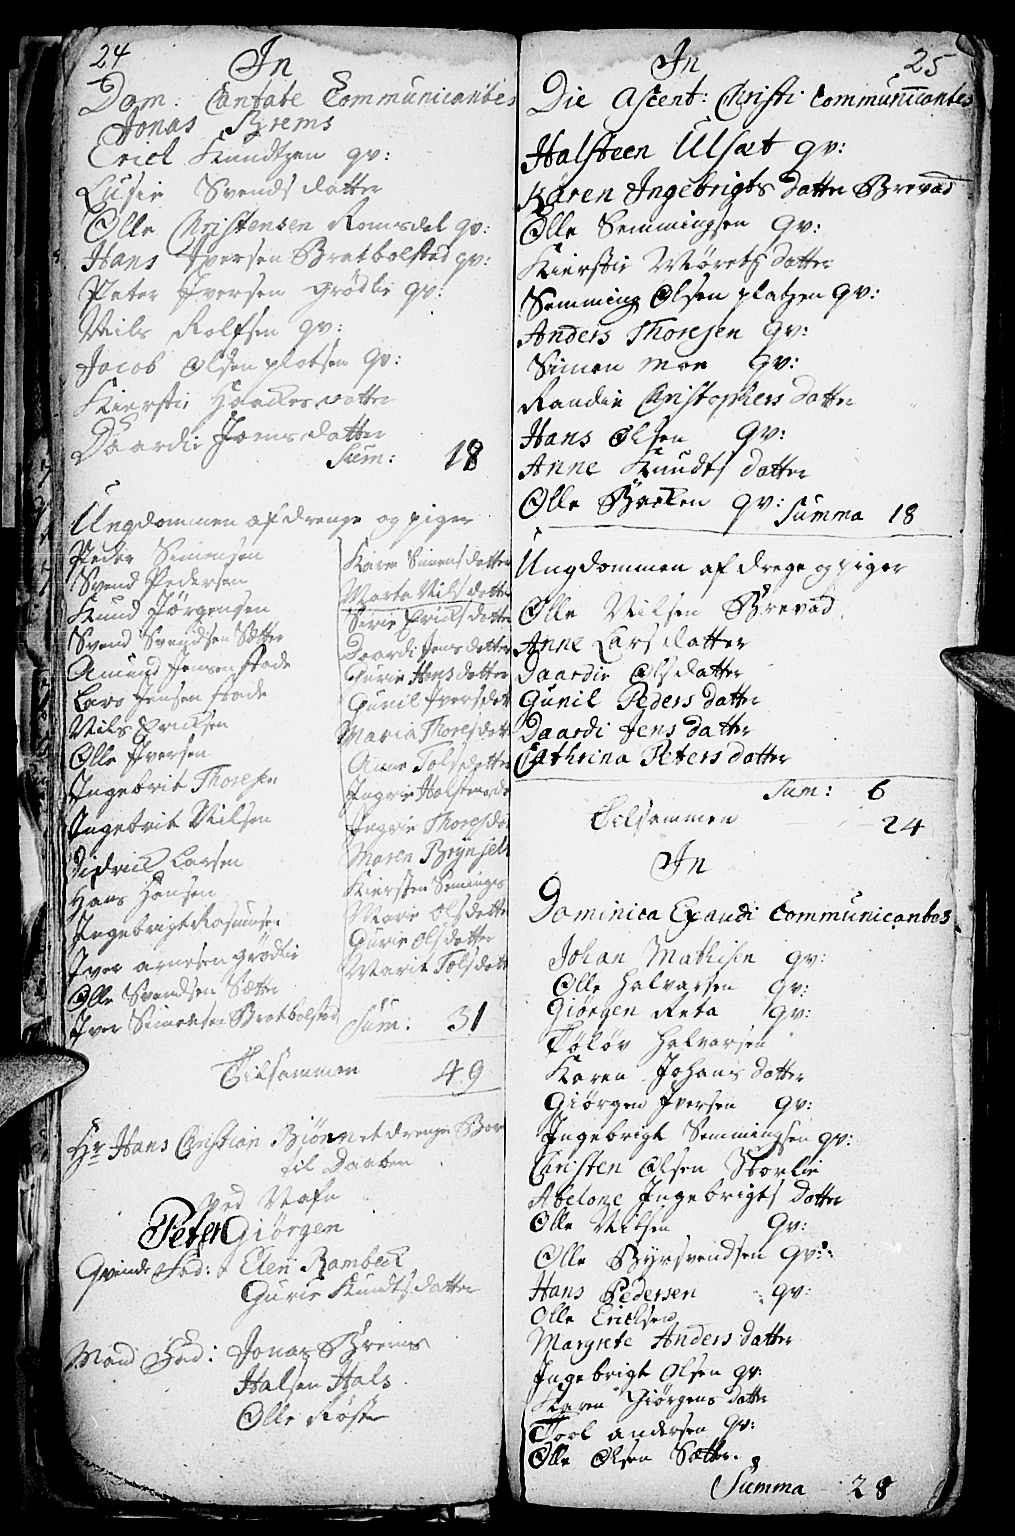 24
In
Dom: Cantate Communicantes
Jonas Brems
Erick Knudtzen qv:
Lusie Svends datter
Olle Christensen Romsdal qv:
Hans Iversen Bratbolstad qv:
Peter Iversen Grødlie qv:
Nils Rolfsen qv:
Jacob Olsen platsen qv:
Kierstie Haackes datter
Daardie Joens datter
Sum: 18
Ungdommen af drenge og piger
Peder Simensen
Svend Pedersen
Knud Jørgensen
Svend Svendsen Sætter
Amund Jensen stade
Lars Jensen stade
Nils Ericksen
Olle Iversen
Ingebrit Thoresen
Ingebrit Nilsen
Didrick Larsen
Hans Hansen
Ingebrigt
Iver arnesen grødlie
Olle Svendsen Sætter
Iver Simensen Bratbolstad
Karen Simens datter
Marta Nils datter
Sirie Ericks datter
Daardi Jens datter
Gurie Hans datter
Gunil Ivers dat
Maria Thores datt
Anne Tols datter
Ingrie Halstens da
Ingrie Thores da
Maren Brynjels
Kiersten Semings
Marie Ols datter
Gurie Ols datter
Marit Tols datt
Sum: 31
Tilsammen 49
Hr Hans Christian Biønn et drenge Bar
til Daaben
ved Nafn
Peter Giørgen
Qvinde Fad: Elen Rambeck
Gurie Knudts datter
Mand Fad: Jonas Brems
Halsen Hals
Olle Røst
25
In
Die Ascent: Christi Communicantes
Halsteen Ulsæt qv:
Karen Ingebrigts datter Brevad
Olle Semmingsen qv:
Kierstie Miørets datter
Semming Olsen platzen qv:
Anders Thoresen qv:
Simen Moe qv:
Randie Christophers datter
Hans Olsen qv:
Anne Knudts datter
Olle Bracken qv:
Summa 18
Ungdommen af drege og piger
Olle Nilsen Brevad
Anne Lars datter
Daardie Ols datter
Gunil Peders datter
Daardi Jens datter
Cathrina Peters datter
Sum: 6
Tilsammen 24
In
Dominica Exaudi Communicantes
Johan Mathisen qv:
Olle Halvarsen qv:
Giørgen Reta qv:
Tøløv Halvarsen
Karen Johans datter
Giørgen Iversen qv:
Ingebrigt Semmingsen qv:
Christen Olsen Storlie
Abelone Ingebrigts datter
Olle Nilsen qv:
Olle Byrsvendsen qv:
Hans Pedersen qv:
Olle Ericksen
Margrete Anders datter
Ingebrigt Olsen qv:
Karen Giørgens datter
Tool andersen qv:
Olle Olsen Sætter.
Summa 28